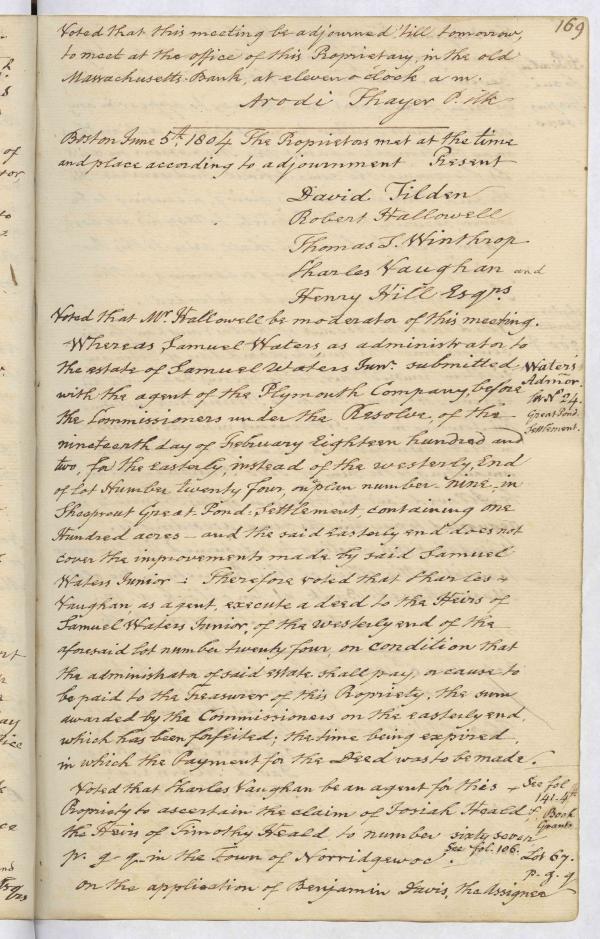 169
Voted that this meeting be adjourned 'till tomorrow,
to meet at the office of this Propriety, in the old
Massachusetts Bank, at eleven o clock a m.
Arodi Thayer P. Clk
Boston June 5th, 1804 The Proprietors met at the time
and place according to adjournment Present
David Tilden
Robert Hallowell
Thomas L. Winthrop
Charles Vaughan and
Henry Hill Esqrs.
Voted that Mr. Hallowell be moderator of this meeting.
Whereas Samuel Waters as administrator to
the estate of Samuel Waters Junr. submitted
with the agent of the Plymouth Company, before
the Commissioners under the Resolve, of the
nineteenth day of February Eighteen hundred and
two, for the easterly, instead of the westerly, End
of lot Number twenty four, on plan number nine in
Sheepscut Great Pond Settlement, containing one
Hundred acres – and the said Easterly end does not
cover the improvements made by said Samuel
Waters Junior : Therefore voted that Charles
Vaughan, as agent, execute a deed to the Heirs of
Samuel Waters Junior, of the westerly end of the
aforesaid lot number twenty four, on condition that
the administrator of said estate shall pay, or cause to
be paid to the Treasurer of this Propriety, the sum
awarded by the Commissioners on the easterly end,
which has been forfeited; the time being expired,
in which the Payment for the Deed was to be made.
Waters'
Admor.
N° 24.
Great Pond
Settlement.
Voted that Charles Vaughan be an agent for this
Propriety to ascertain the claim of Josiah Heald &
the Heirs of Timothy Heald to number sixty seven
p. g. q in the Town of Norridgewoc. See fol. 106.
on the application of Benjamin Davis, the Assignee
See fol
141. 4th
Book
Grants
Lot 67.
p. g. q